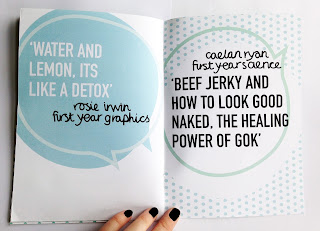 ‘WATER AND
LEMON, ITS
LIKE A DETOX’
rosie irwin
first year graphics
caelan ryan
first year science
‘BEEF JERKY AND
HOW TO LOOK GOOD
NAKED, THE HEALING
POWER OF GOK’